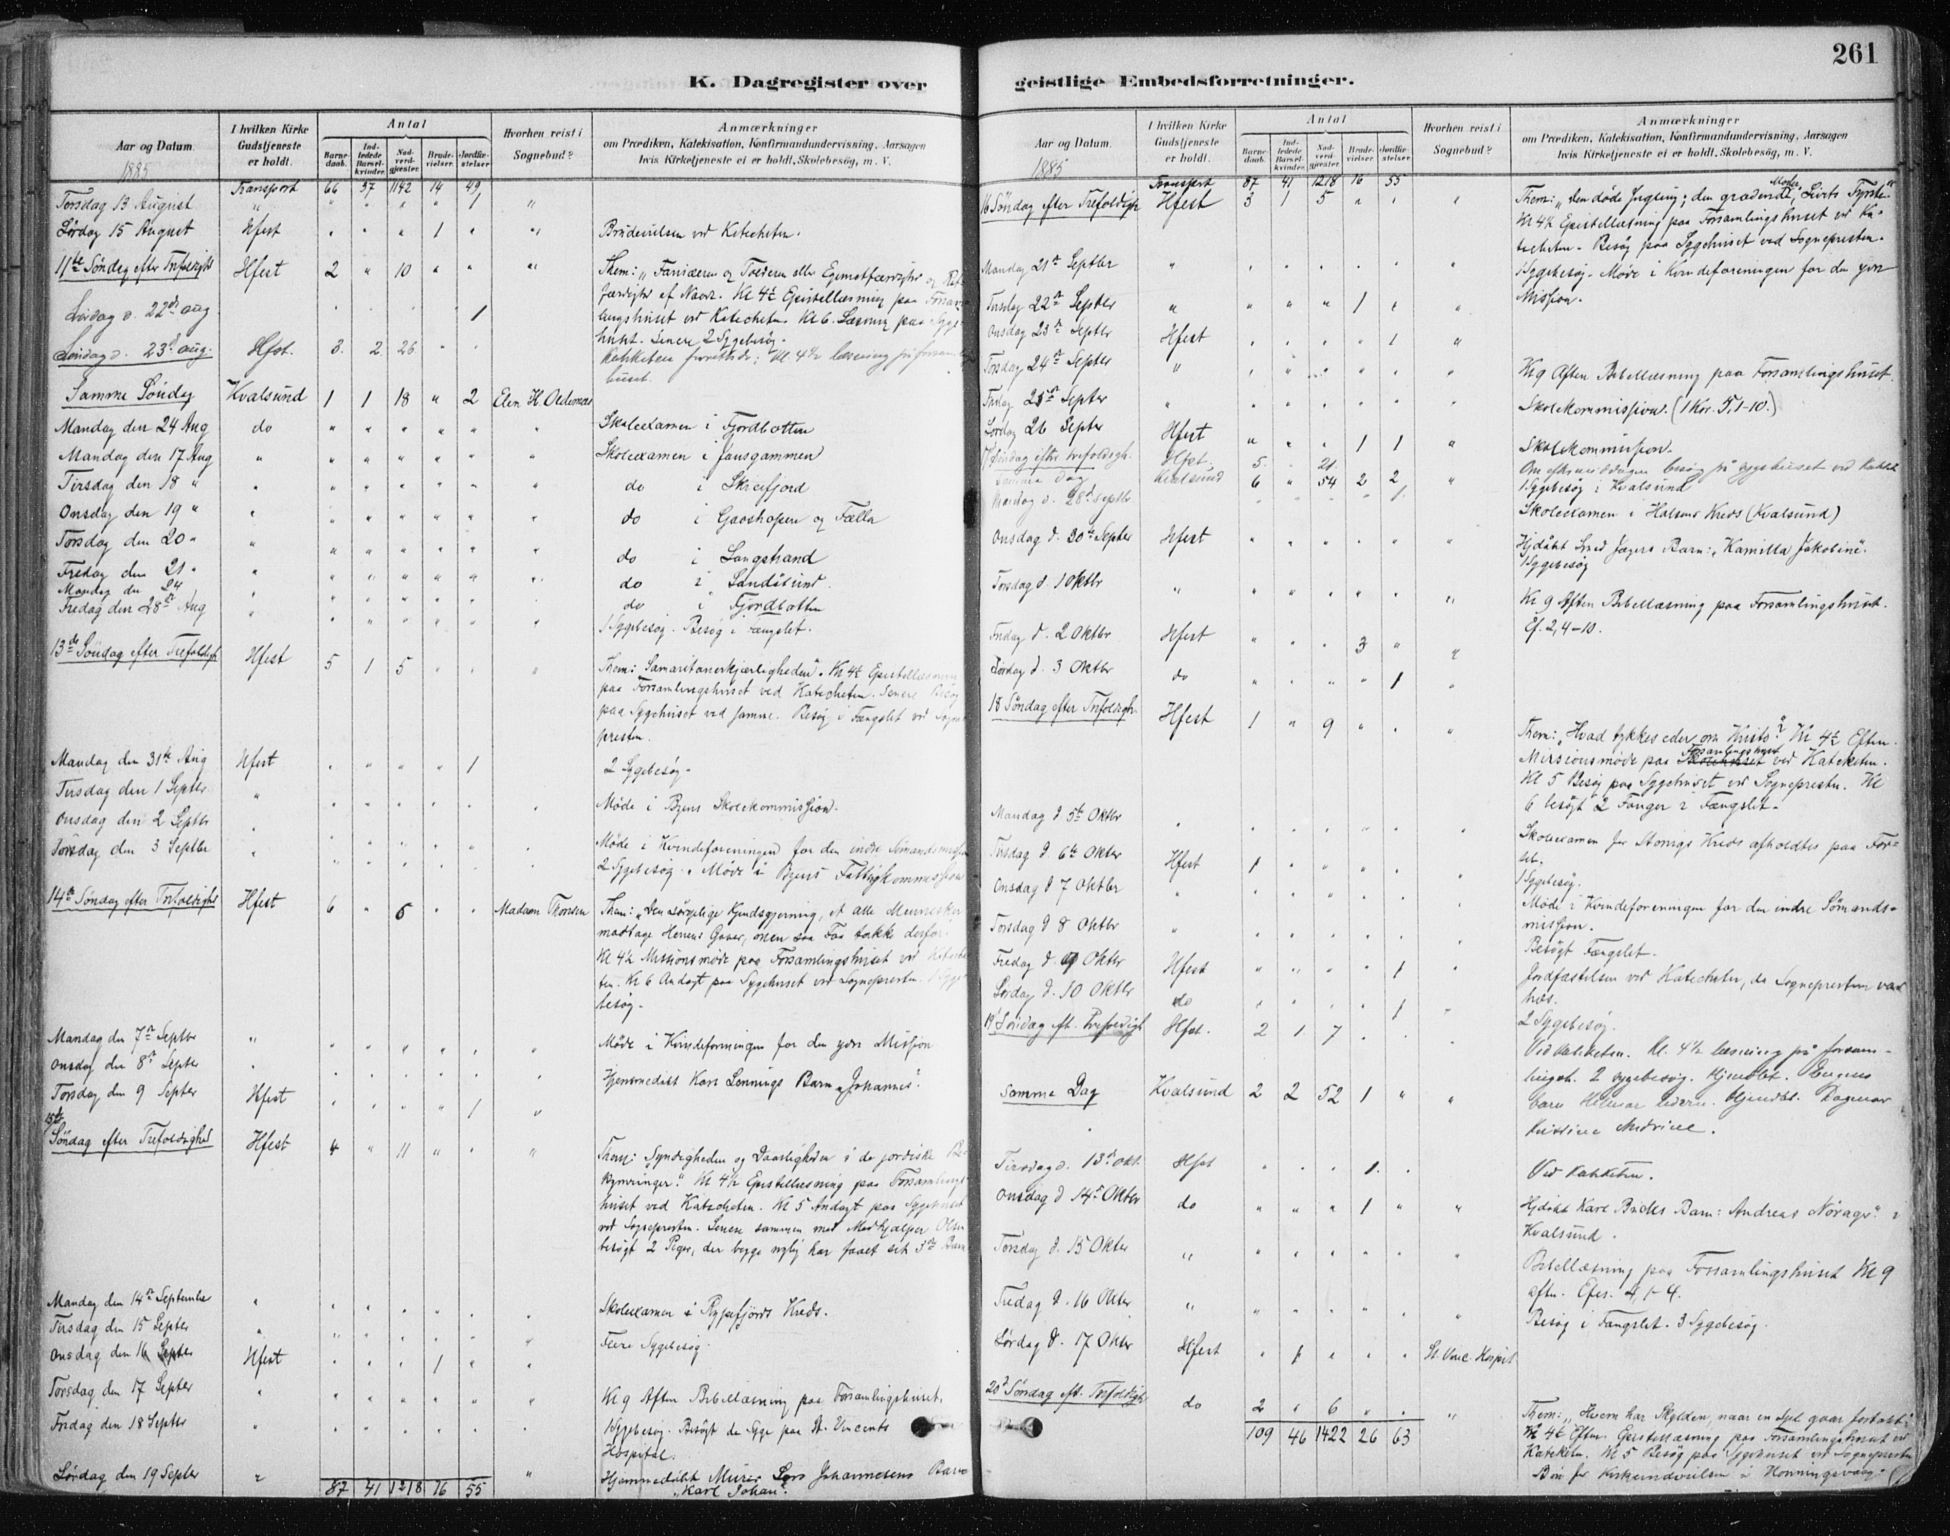 261
K. Dagregister over geistlige Embedsforretninger.
Aar og Datum
I hvilken Kirke Gudstjeneste er holdt.
Antal
Barne-daab.
Ind-ledede Barsel-kvinder.
Nad-verd-gjæster.
Brude-vielser.
Jordfæ-stelser.
Hvorhen reist i Sognebud?
Anmærkninger
om Prædiken, Katekisation, Konfirmandundervisning, Aarsagen
hvis Kirketjeneste ei er holdt, Skolebesøg, m. V.
1885
Transport 66 37 1142 14 49
Torsdag 13 August " " " " " 1 "
Lørdag 15 August Hfest " " " 1 " " Brudevielsen ved Katecheten.
11te Søndag efter Trefoldighed Hfest 2 " 10 " " "
Them: " og Tolderen eller
Kl 4½ Epistellæsning paa
ved Katecheten Kl 6. Læsning paa Syge-
huset. Senere 2 Sygebesøg.
Lørdag d. 22de aug. 1
Søndag d. 23d aug. Hfst. 3. 2 26
Katekten forrettede: Kl 4½ læsning på
huset.
Samme Søndag Kvalsund 1 1 18 " 2 Elen H.
Mandag den 24 Aug do Skoleexamen i Fjordbotten
Mandag den 17 Aug " Skoleexamen i Jansgammen
Tirsdag den 18 " do i Skreifjord
Onsdag den 19 " do i og Fælla
Torsdag den 20 " do i Langstrand
Fredag den 21 " do i Sandøsund
Mandag den 24 do i Fjordbotten
Fredag den 28de Aug 1 Sygebesøg. Besøg i Fængslet.
13de Søndag efter Trefoldighed Hfest 5 1 5
Them: Samaritanerkjærligheden. Kl 4½ Epistellæsning
paa Forsamlingshuset ved Katecheten. Senere Besøg
paa Sygehuset ved samme. Besøg i Fængslet ved Sogne-
presten.
Mandag den 31te Aug Hfest " " " " 1 2 Sygebesøg.
Tirsdag den 1 Septbr Møde i Byens Skolekommission.
Onsdag den 2 Septbr Møde i Kvindeforeningen for den indre Sømandsmission
Torsdag den 3 Septbr 2 Sygebesøg. Møde i Byens Fattigkommission
14te Søndag efter Trefoldighed Hfest 6 " 6 " " Madam Thomsen
Them: "Den sørgelige Kjendsgjerning, at alle Mennesker
modtage Herrens Gaver, men saa Faa takke derfor.
Kl 4½ Missionsmøde paa Forsamlingshuset ved Kateche-
ten. Kl 6 Andagt paa Sygehuset ved Sognepresten. 1 Syge-
besøg.
Mandag den 7de Septbr " Møde i Kvindeforeningen for den ydre Mission
Onsdag den 8de Septbr Hjemmedøbt Karl Lennings Barn "Johannes".
Torsdag den 9 Septbr Hfest " " " " 1 "
15de Søndag efter Trefoldighed Hfest 4 " 11 " " "
Them: Syndigheden og Daarligheden i de jordiske Be-
kymringer." Kl 4½ Epistellæsning paa Forsamlings-
huset ved Katecheten. Kl 5 Andagt paa Sygehuset
ved Sognepresten. Senere sammen med Medhjælper Olsen
besøgt 2 Piger, der begge nylig har faaet sit 3die Barn
Mandag den 14de September " Skoleexamen i Rypefjords Kreds.
Tirsdag den 15 Septbr " Fire Sygebesøg.
Onsdag den 16 Septbr Hfest " " " 1 "
Torsdag den 17 Septbr " Kl 9 Aften Bibellæsning paa Forsamlingshuset.
Fredag den 18 Septbr " 1 Sygebesøg. Besøgt de Syge paa St. Vincents
Hospital.
Lørdag den 19 Septbr " Hjemmedøbt Murer Lars Johannesens Barn
"Karl Johan".
87 41 1218 16 55
Aar og Datum
I hvilken Kirke Gudstjeneste er holdt.
Antal
Barne-daab.
Ind-ledede Barsel-kvinder.
Nad-verd-gjæster.
Brude-vielser.
Jordfæ-stelser.
Hvorhen reist i Sognebud?
Anmærkninger
om Prædiken, Katekisation, Konfirmandundervisning, Aarsagen
hvis Kirketjeneste ei er holdt, Skolebesøg, m. V.
1885
Transport 87 41 1218 16 55
16 Søndag efter Trefoldigh Hfest 3 1 5 " " "
Them: "den døde Yngling; den grædende Moder, Livets Fyrste".
Kl 4½ Epistellæsning paa Forsamlingshuset ved Ka-
techeten. Besøg paa Sygehuset ved Sognepresten.
Mandag 21de Septbr " 1 Sygebesøg. Møde i Kvindeforeningen for den ydre
Mission.
Tirsdag 22de Septbr " " " " 1 "
Onsdag 23de Septbr Hfest " " " " 1 "
Torsdag 24de Septbr " Kl 9 Aften Bibellæsning paa Forsamlingshuset.
Fredag 25de Septbr " Skolekommission. (1 Kor. 5, 1-10.)
Lørdag 26 Septbr Hfest " " " 1 1 " Skolekommission.
17 Søndag efter Trefoldigh. Hfst. 5. 21. Om eftermiddagen besøg på sygehuset ved Katekt
Samme dag Kvalsund 6 " 54 2 2 " 1 Sygebesøg i Kvalsund
Mandag d. 28d septbr 1. Skoleexamen i Kreds (Kvalsund)
Onsdag d. 30te Septbr Hfest Hjdøbt Smed Jægers Barn: "Kamilla Jakobine".
1 Sygebesøg
Torsdag d. 1 Oktbr " Kl 9 Aften Bibellæsning paa Forsamlingshuset.
Ef. 2, 4-10.
Fredag d. 2 Oktbr Hfest " " " 3 " "
Lørdag d. 3 Oktbr do " " " " 1 "
18 Søndag efter Trefoldigh. Hfest 1 " 9 " " "
Them: "Hvad tykkes eder om Kristo"? Kl 4½ Eftm.
Missionsmøde paa Forsamlingshuset ved Katecheten.
Kl 5 Besøg paa Sygehuset ved Sognepresten. Kl
6 besøgt 2 Fanger i Fængslet.
Mandag d 5te Oktbr " Skoleexamen for Kreds afholdtes paa
Tirsdag d. 6te Oktbr Hfest 1 " " " " " 1 Sygebesøg.
Onsdag d 7 Oktbr " Møde i Kvindeforeningen for den indre Sømands-
mission.
Torsdag d 8 Oktbr " Besøgt Fængslet.
Fredag d. 9 Oktbr Hfest " " " " 1 " Jordfæstelsen ved Katecheten, da Sognepresten var
Lørdag d. 10 Oktbr do " " " " 1 " 2 Sygebesøg.
19d Søndag eft. Trefoldigh Hfst. 2 1 7
Ved katekten. Kl. 4½ læsning på forsam-
lingsh. 2 sygebesøg. Hjemdbt.
barn Hilmar Hjemdbt. Dagmar
Kristine
Samme Dag Kvalsund 2 2 52 1 " "
Tirsdag d. 13d okt. Hfst 1. Ved katekten.
Onsdag d 14de Oktbr do " " " 1 " " Hjdøbt Karl Barn: "Andreas i
Kvalsund.
Torsdag d. 15 Oktbr " Bibellæsning paa Forsamlingshuset Kl 9
aftn. Efes. 4, 1-4.
Fredag d. 16 Oktbr " Besøg i Fængslet. 3 Sygebesøg.
Lørdag d. 17 Oktbr Hfest " 1 " " " St. Vinc. Hospit.
20d Søndag eft. Trefoldigh do 2 " 6 " " "
Them: "Hvem har Skylden, naar en Sjæl gaar fortabt?"
Kl 4½ Eftm. Epistellæsning paa Forsamlingshuset ved
Katekten. Kl 5 Besøg paa Sygehuset ved Sognepresten
Bøn for Kirkeindvielsen i Honningsvaag.
109 46 1422 26 63